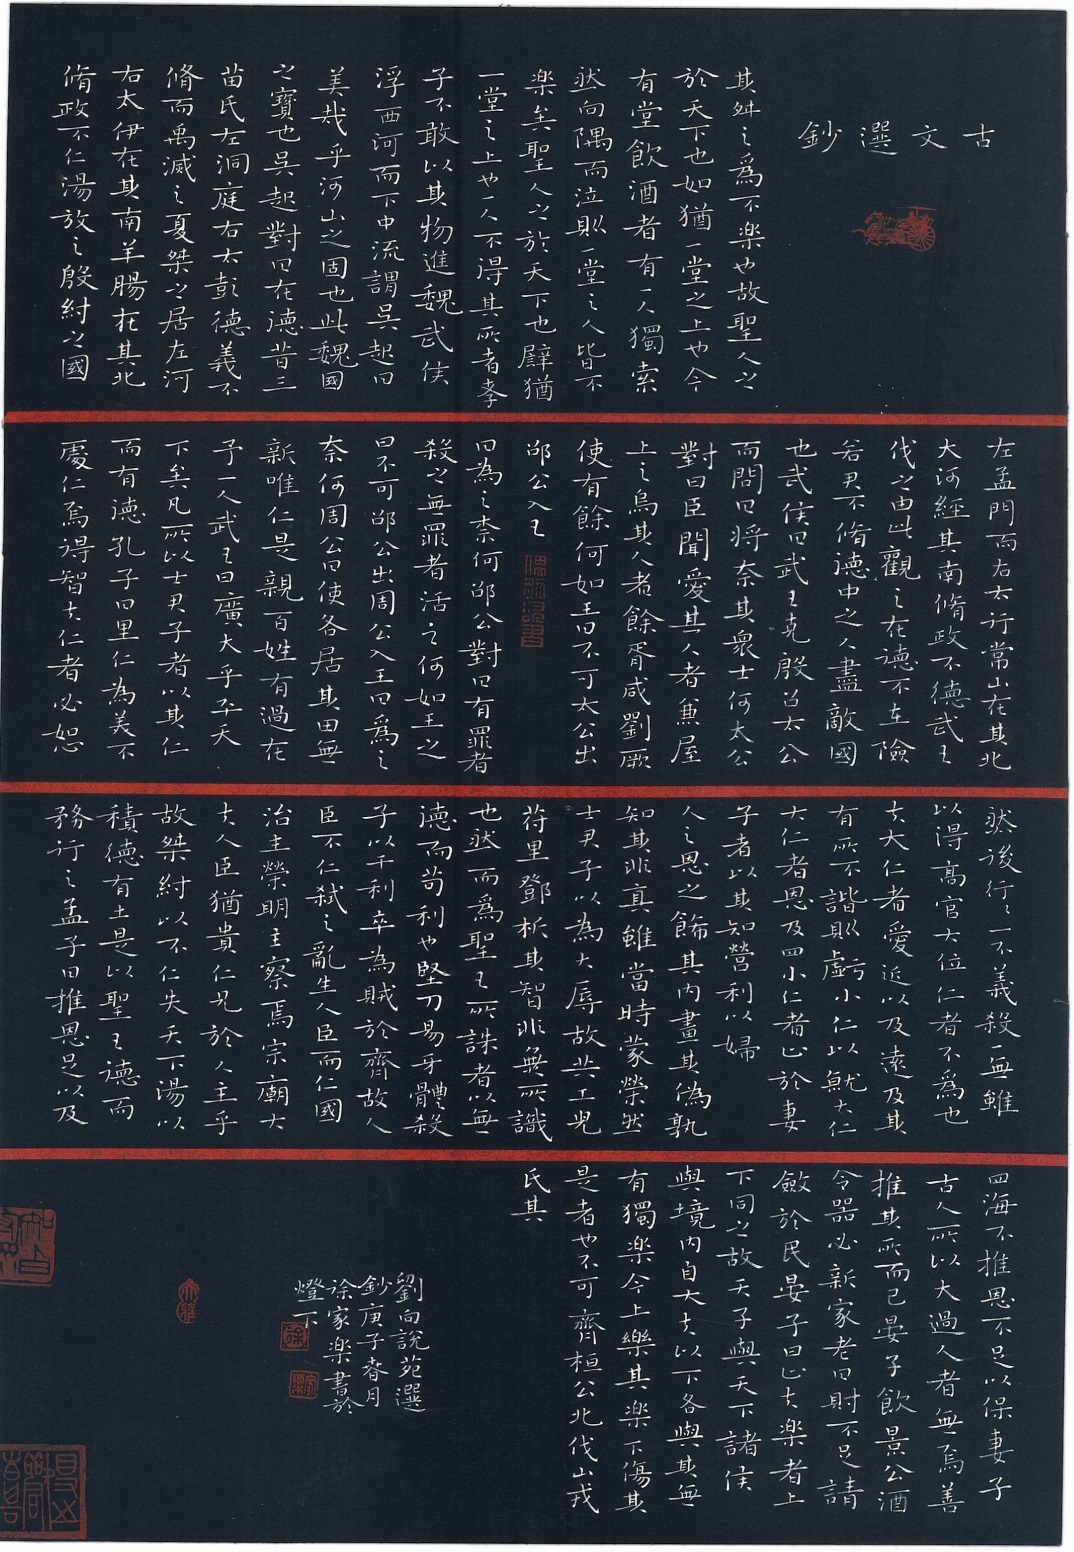 古文選鈔
其舛之爲不楽也故聖人之
於天下也如猶一堂之上也今
有堂飲酒者有一人獨索
然向隅而泣則一堂之人皆不
楽矣聖人之於天下也譬猶
一堂之上也一人不得其所者孝
子不敢以其物進魏武侯
浮西河而下中流謂吳起曰
美哉乎河山之固也此魏國
之寶也吳起對曰在德昔三
苗氏左洞庭右太彭德義不
脩而禹滅之夏桀之居左河
右太伊在其南羊腸在其北
脩政不仁湯放之殷紂之國
左孟門而右太行常山在其北
大河經其南脩政不德武王
伐之由此觀之在德不在險
若君不脩德中之人盡敵國
也武侯曰武王克殷召太公
而問曰将奈其衆士何太公
對曰臣聞愛其人者兼屋
上之烏其人者餘胥咸劉厥
使有餘何如王曰不可太公出
邵公入王
曰為之柰何邵公對曰有罪者
殺之無罪者活之何如王之
曰不可邵公出周公入王曰爲之
奈何周公曰使各居其田無
新唯仁是親百姓有過在
予一人武王曰廣大乎平天
下矣凡所以士君子者以其仁
而有德孔子曰里仁為美不
處仁焉得智夫仁者必恕
然後行之一不義殺一無雖
以得高官大位仁者不爲也
夫大仁者愛近以及遠及其
有所不諧則虧小仁以就大仁
大仁者恩及四小仁者止於妻
子者以其知營利以婦
人之恩之飾其内畫其偽孰
知其非真雖當時蒙榮然
士君子以為大辱故共工児
符里鄧析其智非無所識
也然而爲聖王所誅者以無
德而苟利也堅刀易牙體殺
子以干利卒為賊於齊故人
臣不仁弑之亂生人臣而仁國
治主榮明主察焉宗廟大
夫人臣猶貴仁况於人主乎
故桀紂以不仁失天下湯以
積德有土是以聖王德而
務行之孟子曰推恩足以及
四海不推恩不足以保妻子
古人所以大過人者無焉善
推其所而已晏子飲景公酒
令器必新家老曰財不足請
斂於民晏子曰止夫楽者上
下同之故天子與天下諸侯
與境内自大夫以下各與其無
有獨楽今上樂其楽下傷其
是者也不可齊桓公北伐山戎
氏其
劉向說苑選
鈔庚子春月
徐家楽書於
燈下